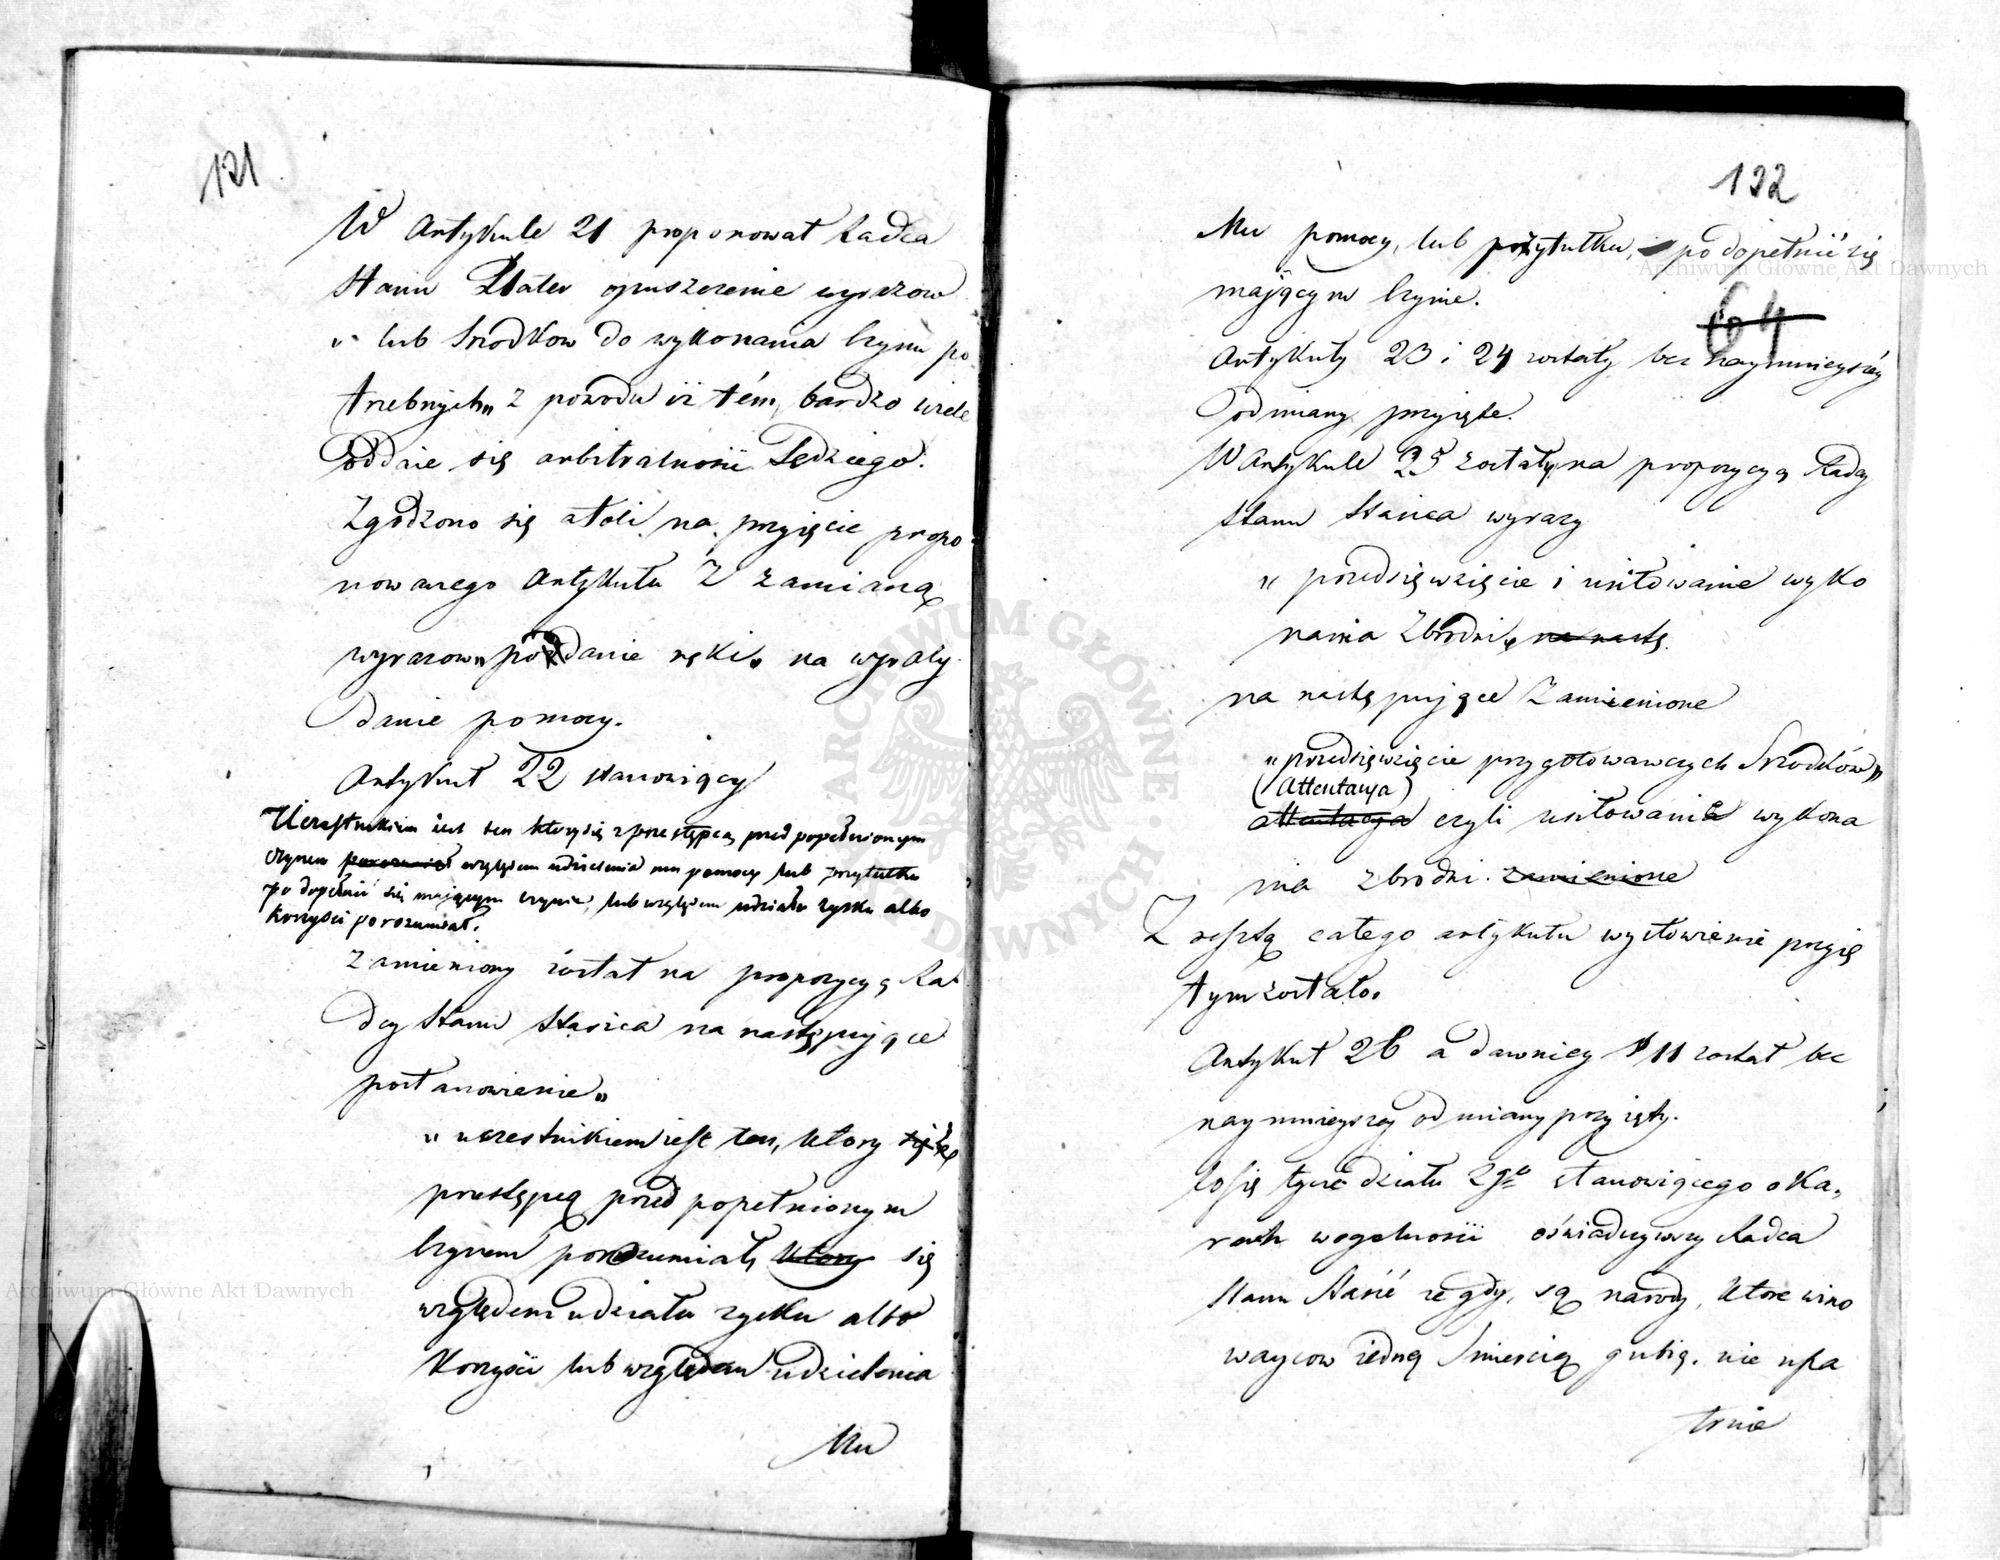 121
W Artykule 21 proponował Radca
Stanu Plater opuszczenie wyrazow
„ lub Srodkow do wykonania Czynu po
trzebnych„ z powodu iż tém, bardzo wiele
oddaie się arbitralności Sędziego.
Zgodzono się atoli na przyięcie propo-
nowanego Artykułu Z zamianą
wyrazow„ podanie ręki„ na wyrazy
danie pomocy.
Artykuł 22 stanowiący
Uczestnikiem iest ten który się z przestępcą przed popełnionym
czynem porozumiał względem udzielenia mu pomocy lub przytułku
po dopełnić się mającym czynie, lub względem udziału zysku albo
korzyści porozumiał.
Zamieniony został na propozycyą Ra-
dcy Stanu Stasica na następuiące
postanowienie„
„ uczestnikiem iest ten, ktory się z
przestępcą przed popełnionym
Czynem porozumiał, ktory się
względem udziału zysku albo
Korzyści lub względem udzielenia
Mu
122
Mu pomocy, lub przytułku, po dopełnić się
maiącym Czynie.
64
Artykuły 23 i 24 zostały bez naymnieyszéy
odmiany przyięte.
W Artykule 25 zostały na propozycyą Radcy
Stanu Stasica wyrazy
„ przedsięwzięcie i usiłowanie wyko
nania Zbrodni„ na nastę.
na następuiące Zamienione
„ przedsięwzięcie przygotowawczych Srodków„
(Attentacya)
attentacya czyli usiłowanie wykona
nia zbrodni. zamienione
Z resztą całego artykułu wysłowienie przyię
tym zostało.
Artykuł 26 a dawniey § 11 został bez
naymnieyszey odmiany przyięty.
Co się tycze działu 2go stanowiącego o Ka„
rach wogolności oświadczywszy Radca
Stanu Stasic że gdy, są narody, ktore wino
waycow iedną Smiercią gubią, nie upa
truie
Archiwum Główne Akt Dawnych
Archiwum Główne Akt Dawnych
ARCHIWUM GŁÓWNE AKT DAWNYCH